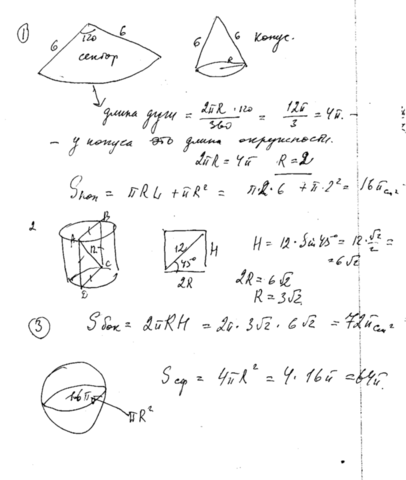 ① 6 120 6 6 6 конус.
сектор R
длина дуги = 2πR · 120 / 360 = 12π / 3 = 4π. -
- у конуса это длина окружности.
2πR = 4π R = 2
Sпол = πRL + πR² = π·2·6 + π·2² = 16π см²
2 B
A 12 C D
12 45° H 2R
H = 12 · Sin 45° = 12 · √2 / 2 =
= 6√2
2R = 6√2
R = 3√2
③ Sбок = 2πRH = 2π · 3√2 · 6√2 = 72π см²
16π Sсф = 4πR² = 4 · 16π = 64π.
πR²